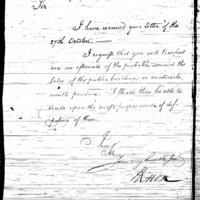 Sir
I have received your letter of the
27th October
I request that you will transmit
me an estimate of the probable amount the
sales of the public buildings, or materials,
would produce. I shall then be able to
decide upon the most proper mode of dis-
posing of them.
I am
Sir